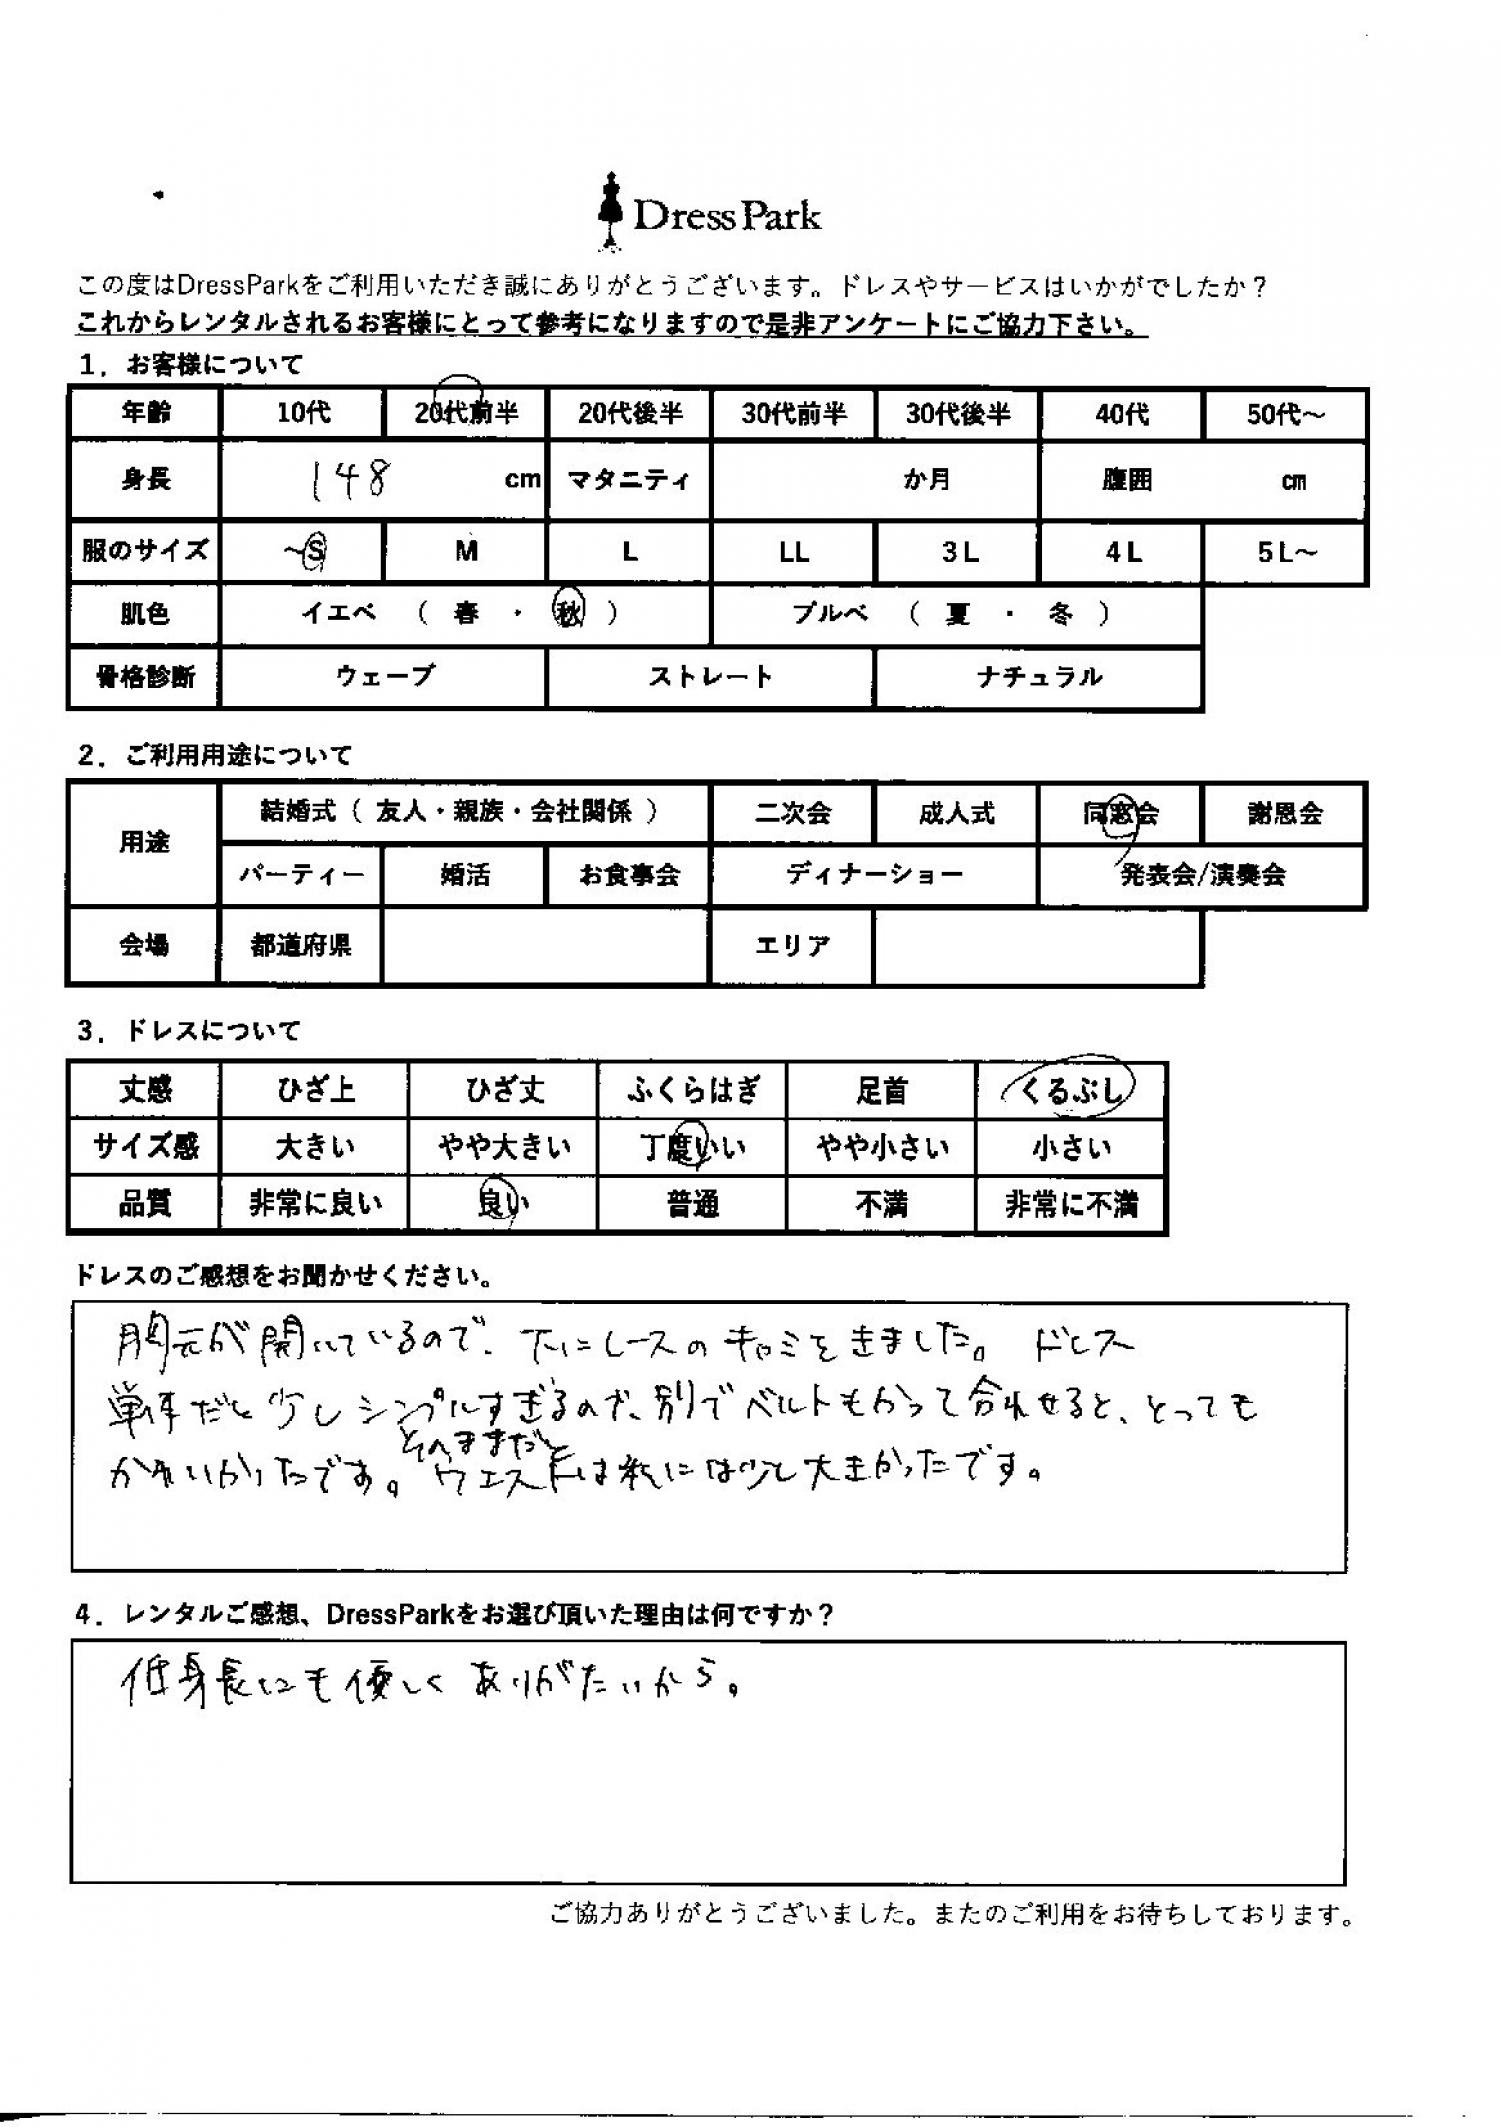 DressPark
この度はDressParkをご利用いただき誠にありがとうございます。ドレスやサービスはいかがでしたか？
これからレンタルされるお客様にとって参考になりますので是非アンケートにご協力下さい。
1．お客様について
年齢 10代 20代前半 20代後半 30代前半 30代後半 40代 50代～
身長 148 cm マタニティ か月 腹囲 cm
服のサイズ ～S M L LL 3L 4L 5L～
肌色 イエベ （ 春 ・ 秋 ） ブルベ （ 夏 ・ 冬 ）
骨格診断 ウェーブ ストレート ナチュラル
2．ご利用用途について
用途 結婚式（ 友人・親族・会社関係 ） 二次会 成人式 同窓会 謝恩会
パーティー 婚活 お食事会 ディナーショー 発表会/演奏会
会場 都道府県 エリア
3．ドレスについて
丈感 ひざ上 ひざ丈 ふくらはぎ 足首 くるぶし
サイズ感 大きい やや大きい 丁度いい やや小さい 小さい
品質 非常に良い 良い 普通 不満 非常に不満
ドレスのご感想をお聞かせください。
胸元が開いているので、下にレースのキャミをきました。 ドレス
単体だと少しシンプルすぎるので、別でベルトもかって合わせると、とっても
かわいかったです。そのままだとウエストは私には少し大きかったです。
4．レンタルご感想、DressParkをお選び頂いた理由は何ですか？
低身長にも優しくありがたいから。
ご協力ありがとうございました。またのご利用をお待ちしております。